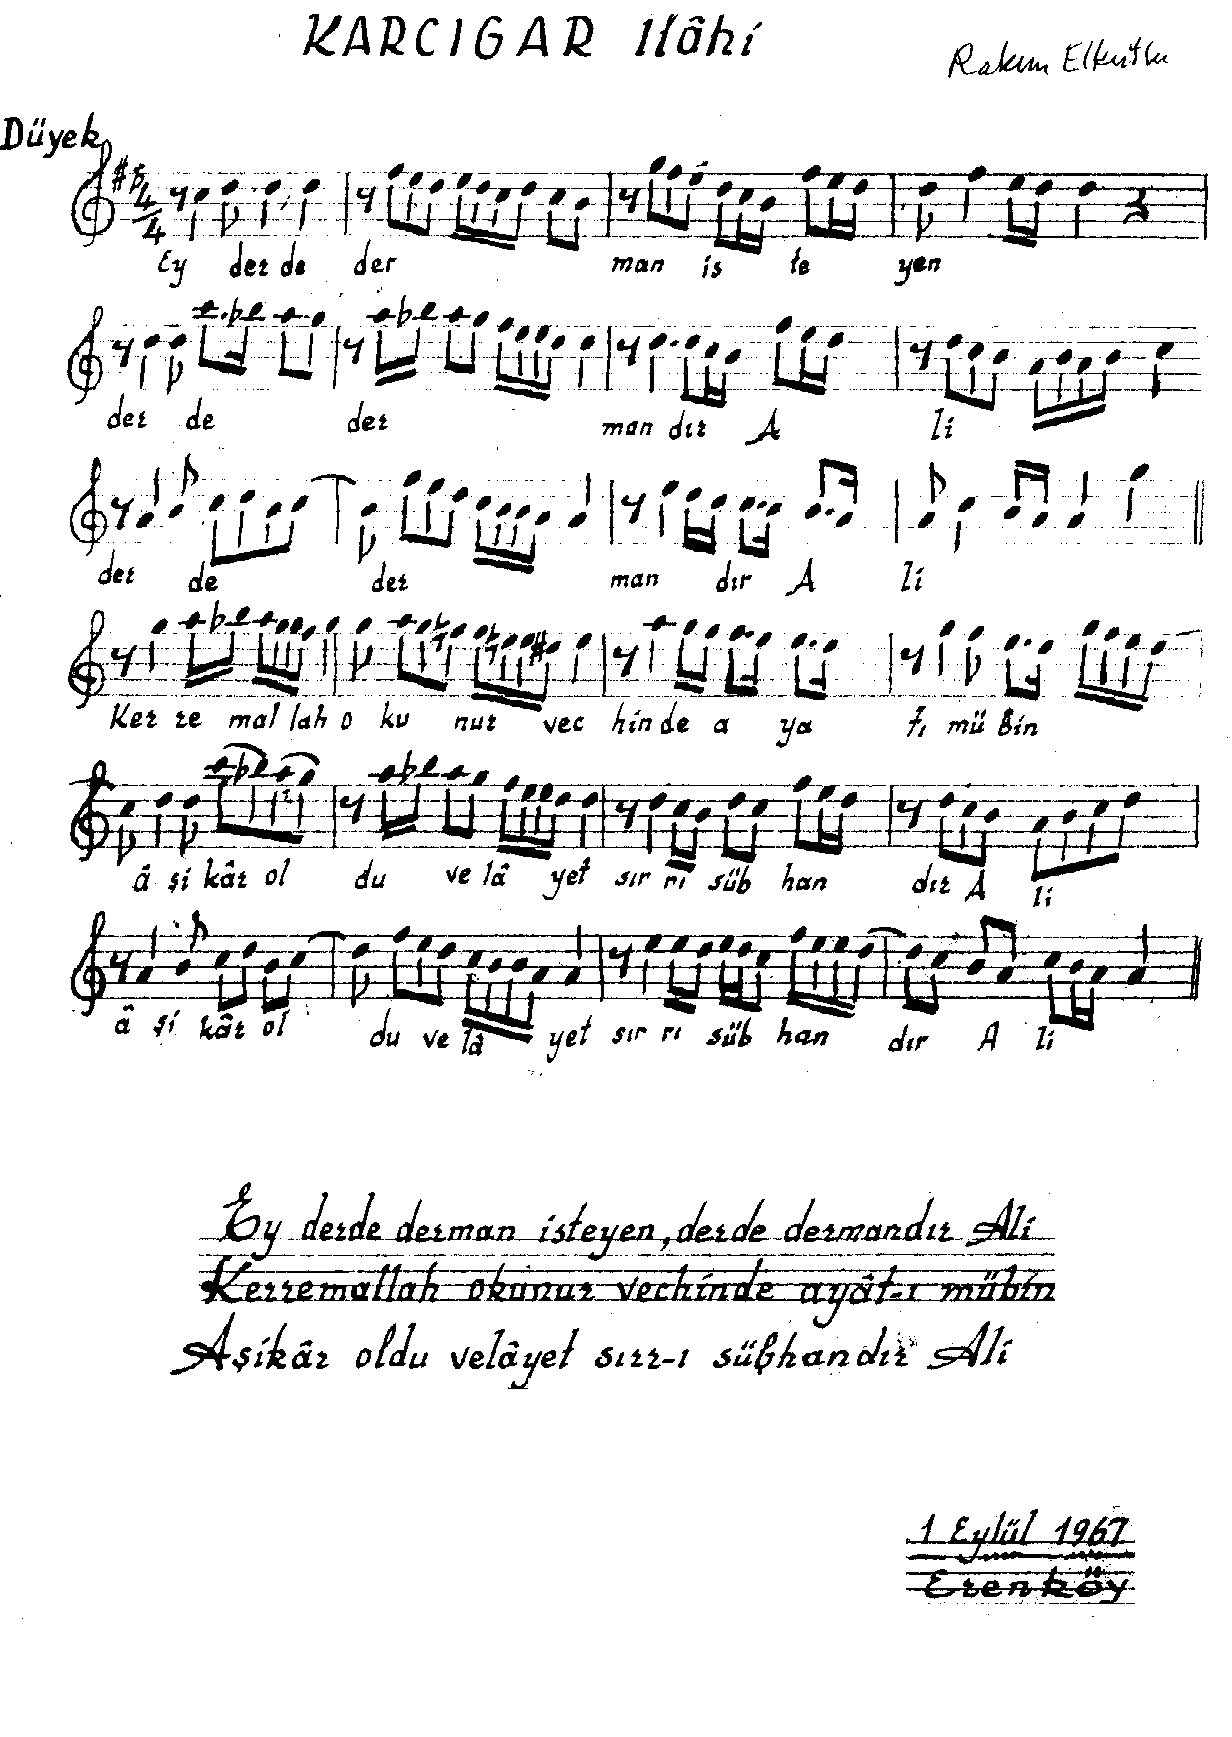 KARCIGAR Ilâhi
Rakım Elkutlu
Düyek
4
4
Ey der de der man is te yen
der de der man dır A li
der de der man dır A li
Ker re mal lah o ku nur vec hin de a ya tı mü bin
â şi kâr ol du ve lâ yet sır rı süb han dır A li
â şi kâr ol du ve lâ yet sır rı süb han dır A li
Ey derde derman isteyen, derde dermandır Ali
Kerremallah okunur vechinde ayât-ı mübin
Aşikâr oldu velâyet sırr-ı sübhandır Ali
1 Eylül 1967
Erenköy